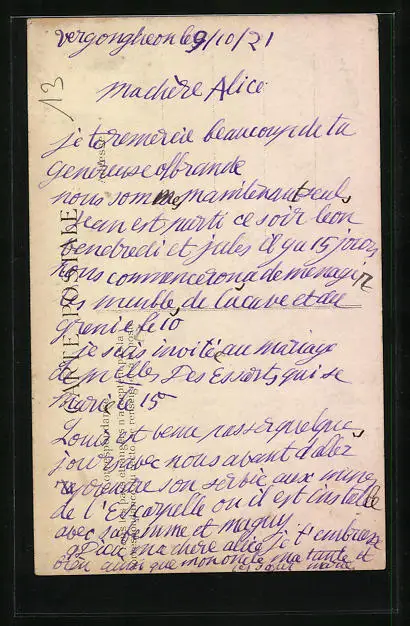 vergongheon le 9/10/21
13
ma chère Alice
je te remercie beaucoup de ta
genereuse offrande
nous sommes maintenant seuls
Jean est parti ce soir leon
vendredi et jules il y a 15 jours
nous commencerons a demenager
les meubles de la cave et du
grenier le 10
je suis invitée au mariage
de Des Essarts qui se
marie le 15
Louis est venu passer quelques
jours avec nous avant d'aller
reprendre son service aux mines
de l'Escarpelle ou il est installé
avec sa femme et maguy
ma chère alice je t'embrasse
bien ainsi que mon oncle ma tante et
CARTE POSTALE